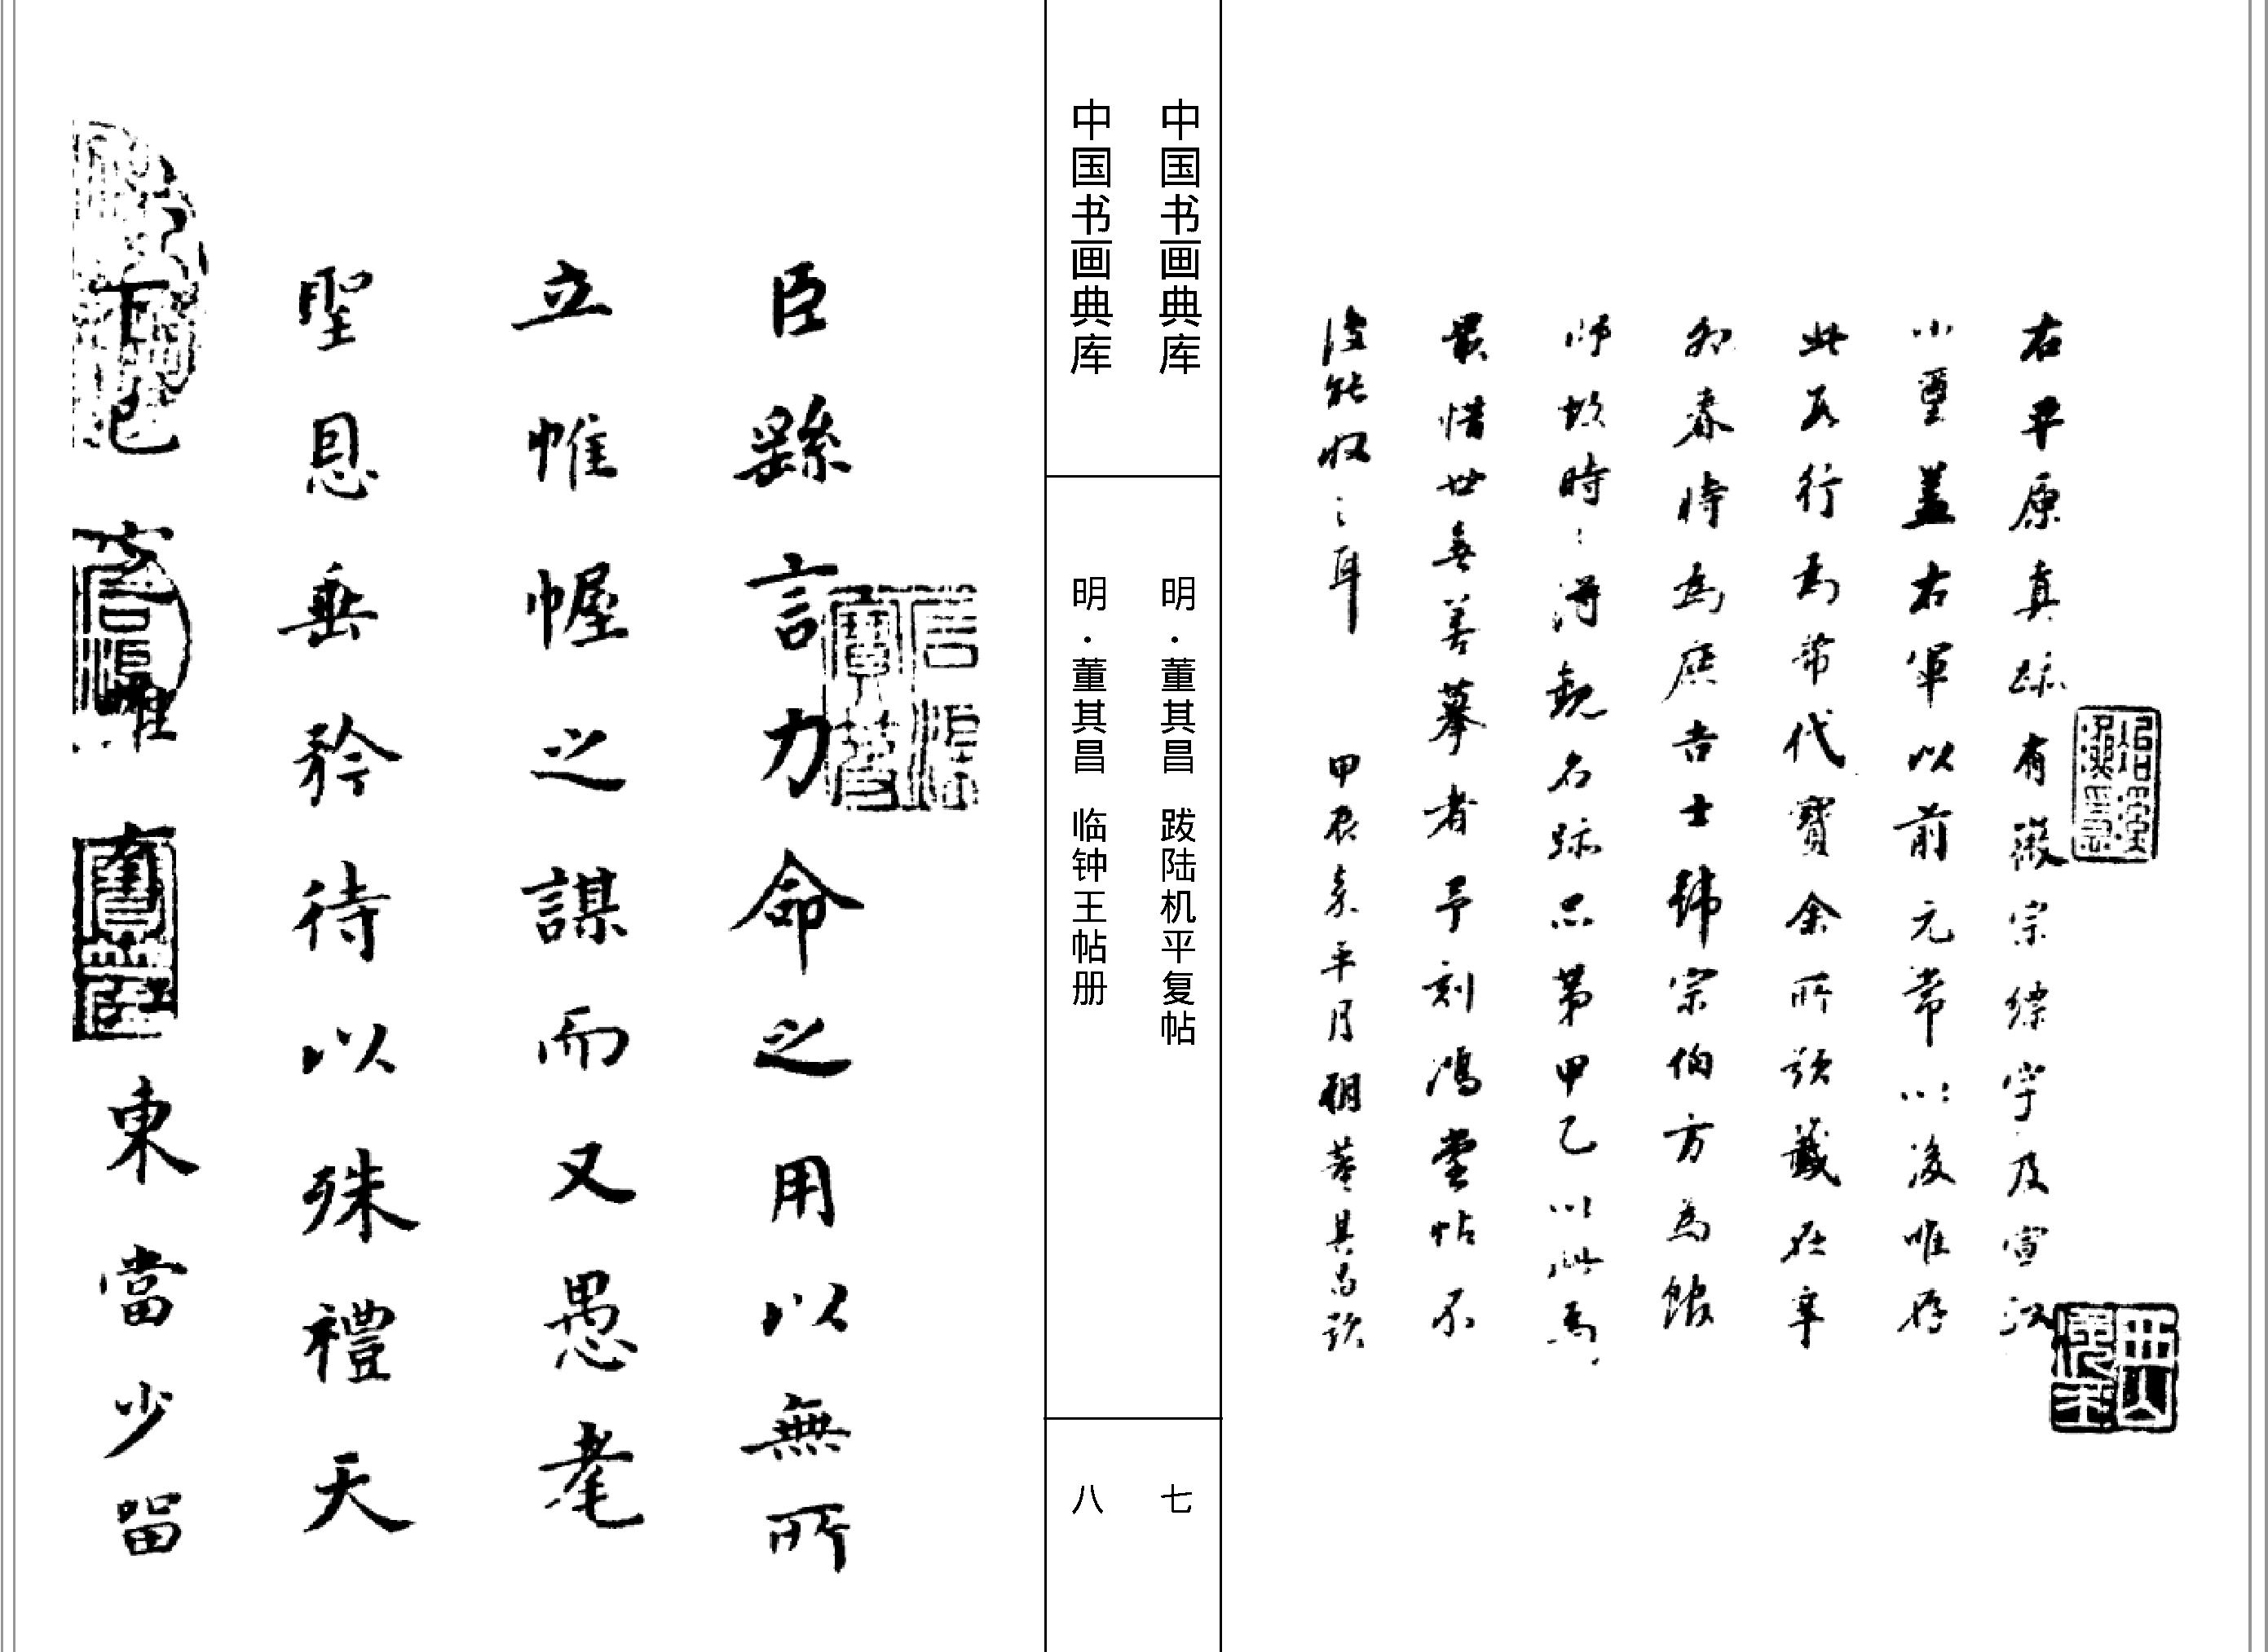 右平原真跡有徽宗縹字及宣政
小璽蓋右軍以前元常以後唯存
此數行為希代寶余所題籤在辛
卯春時為庶吉士韓宗伯方為館
師故時時得觀名跡品第甲乙以此為
最惜世無善摹者予刻鴻堂帖不
復能收之耳 甲辰冬十二月朔董其昌題
中国书画典库
明·董其昌 跋陆机平复帖
七
中国书画典库
明·董其昌 临钟王帖册
八
臣繇言力命之用以無所
立帷幄之謀而又愚耄
聖恩垂矜待以殊禮天
下
東當少留